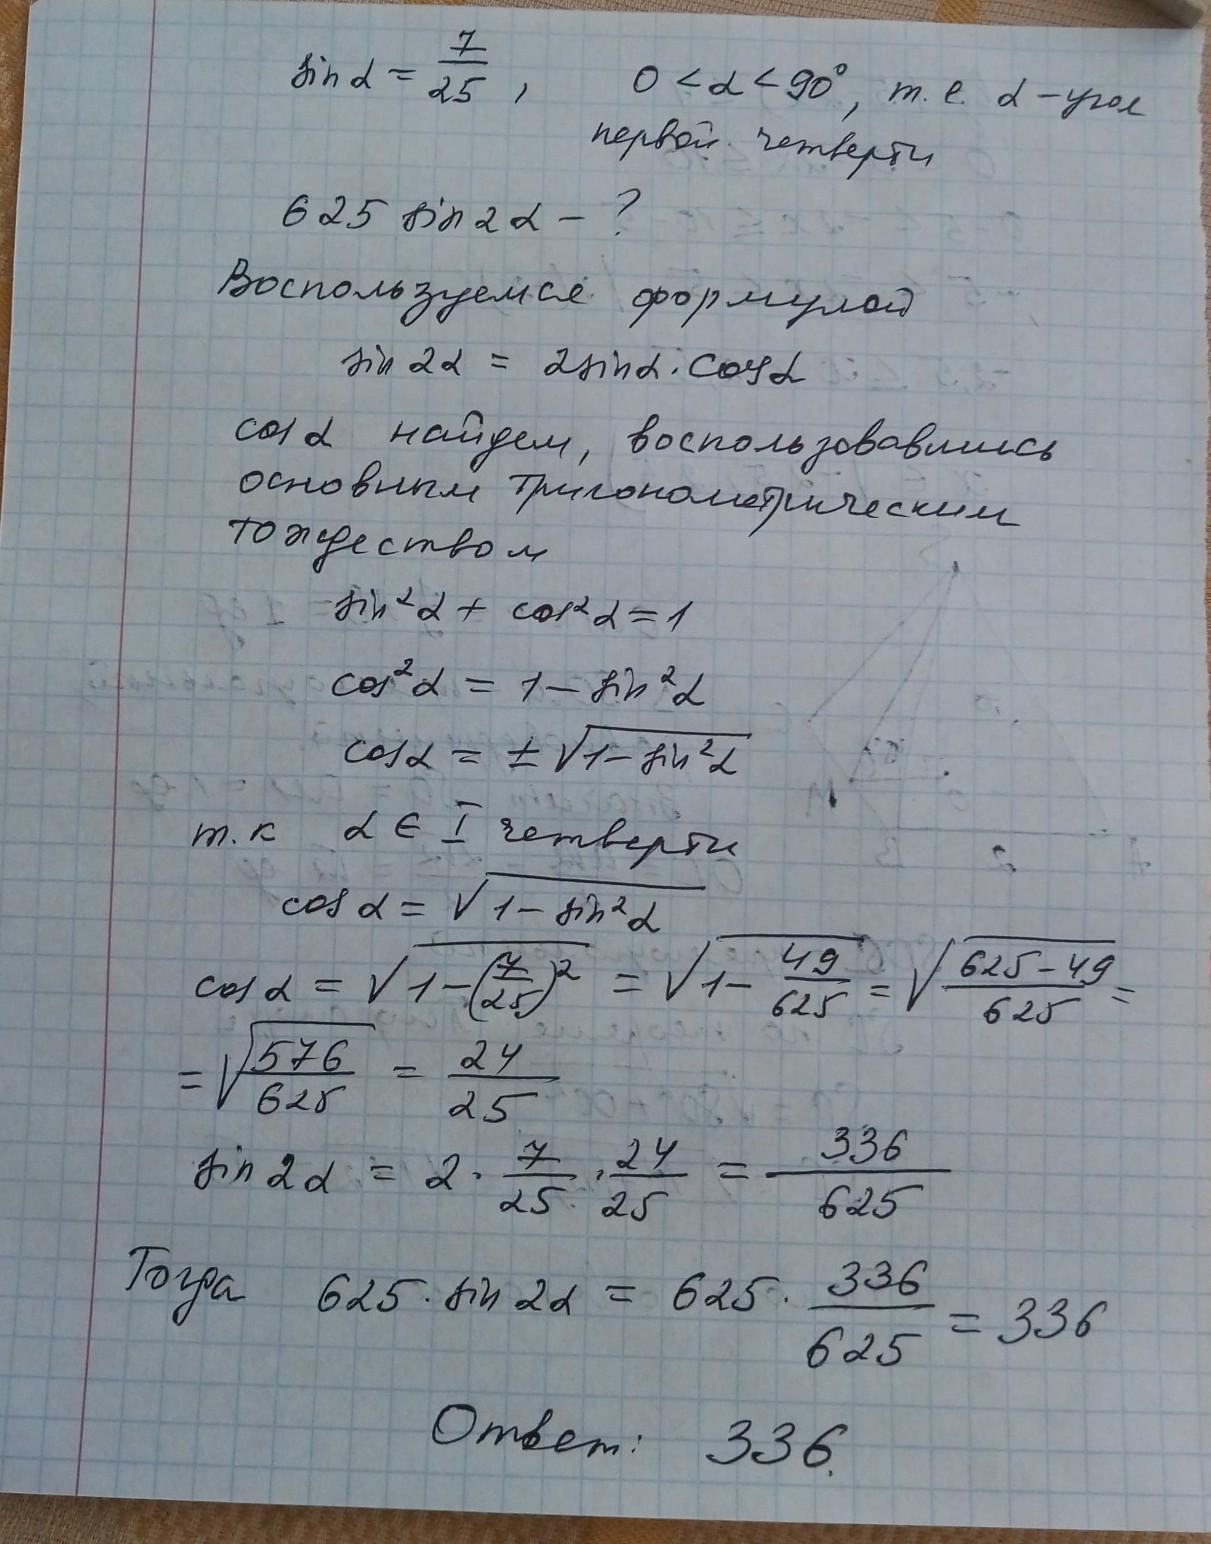 sin α = 7/25, 0 < α < 90°, т. е. α – угол
первой четверти
625 sin 2α – ?
Воспользуемся формулой
sin 2α = 2 sin α · cos α
cos α найдем, воспользовавшись
основным тригонометрическим
тождеством
sin²α + cos²α = 1
cos²α = 1 – sin²α
cos α = ± √(1 – sin²α)
т.к α ∈ I четверти
cos α = √(1 – sin²α)
cos α = √(1 – (7/25)²) = √(1 – 49/625) = √((625 – 49)/625) =
= √(576/625) = 24/25
sin 2α = 2 · 7/25 · 24/25 = 336/625
Тогда 625 · sin 2α = 625 · 336/625 = 336
Ответ: 336.